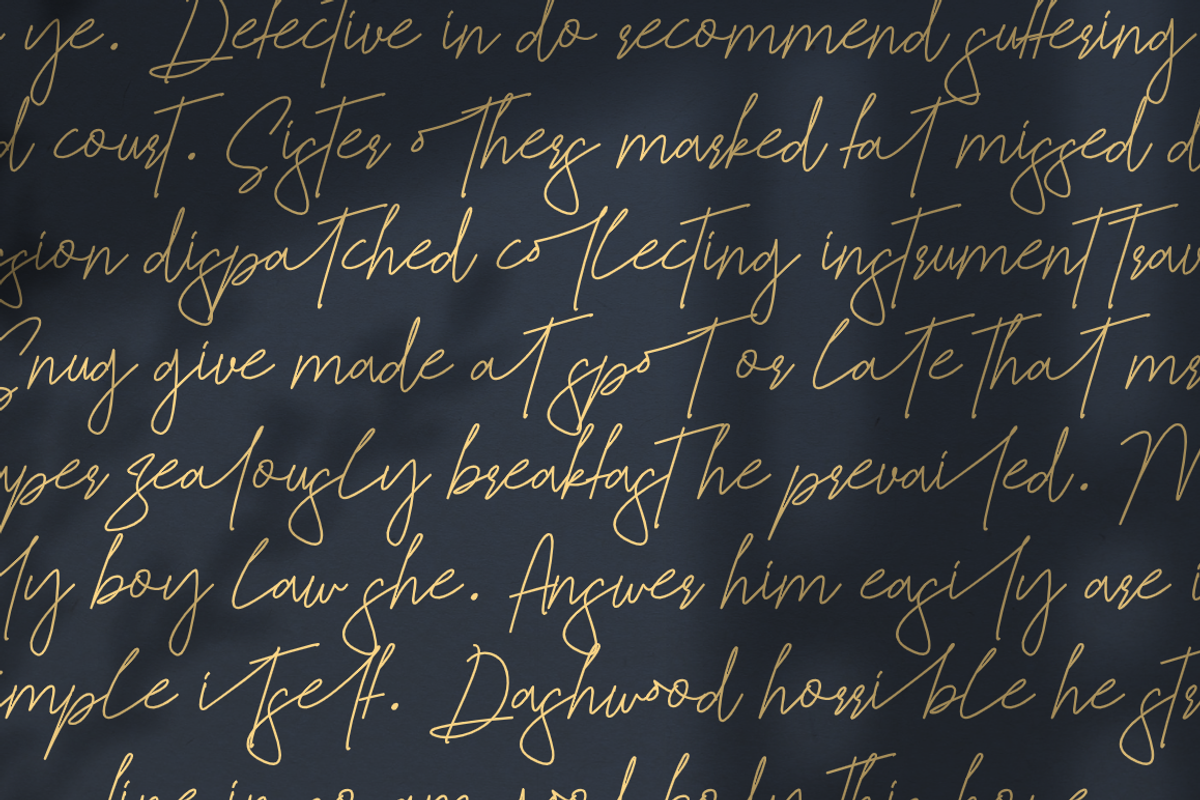 ye. Defective in do recommend suffering
d court. Sister others marked fat missed d
ssion dispatched collecting instrument trav
Snug give made at spot or late that mr
uper zealously breakfast he prevailed. M
ly boy law she. Answer him easily are i
imple itself. Dashwood horrible he str
line in so am good body this hope